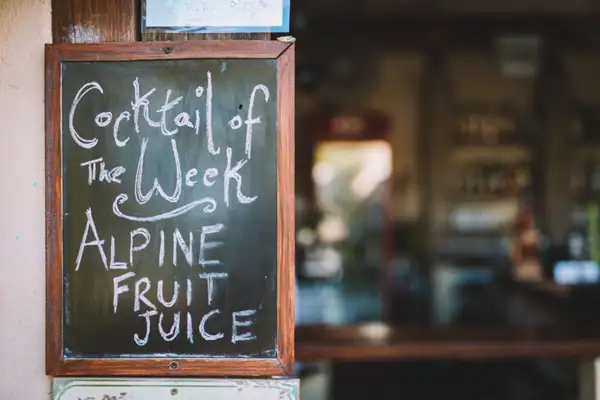 Cocktail of
The Week
ALPINE
FRUIT
JUICE